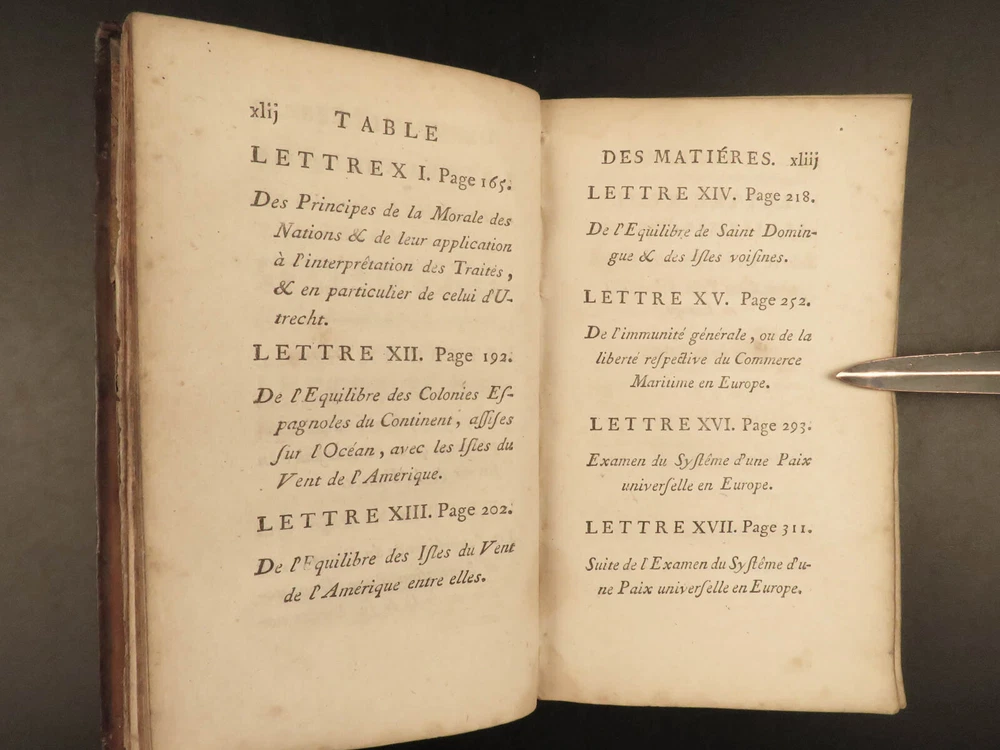 xlij TABLE
LETTREX I. Page 165.
Des Principes de la Morale des
Nations & de leur application
à l'interprêtation des Traités,
& en particulier de celui d'U-
trecht.
LETTRE XII. Page 192.
De l'Equilibre des Colonies Eſ-
pagnoles du Continent, aſſiſes
ſur l'Océan, avec les Iſles du
Vent de l'Amérique.
LETTRE XIII. Page 202.
De l'Equilibre des Iſles du Vent
de l'Amérique entre elles.
DES MATIÉRES. xliij
LETTRE XIV. Page 218.
De l'Equilibre de Saint Domin-
gue & des Iſles voiſines.
LETTRE XV. Page 252.
De l'immunité générale, ou de la
liberté reſpective du Commerce
Maritime en Europe.
LETTRE XVI. Page 293.
Examen du Syſtême d'une Paix
univerſelle en Europe.
LETTRE XVII. Page 311.
Suite de l'Examen du Syſtême d'u-
ne Paix univerſelle en Europe.